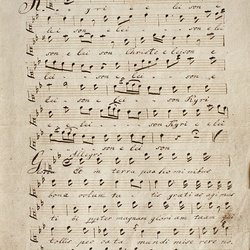 gri e lei son
lei son e lei son e
son e lei son christe e leison e
lei son e lei son e
lei son e lei son Kyri
e e lei son Kyri e e lei
son e lei son
Allegro
et in terra pax ho mi nibus
bonæ volun ta tis gratias agimus
ti bi propter magnam gloriam tuam
tollis pec ca ta mundi mise rere no